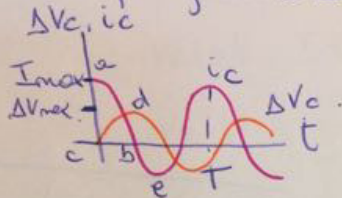 ΔVc, ic
Imax a
ΔVmax
d
ic
ΔVc
t
c b
e
T